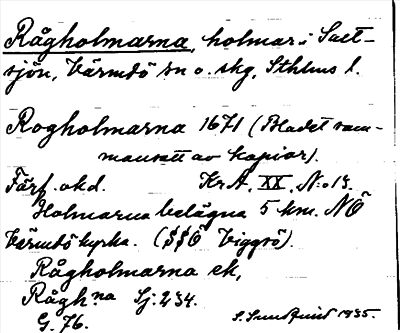 Rågholmarna, holmar i Salt-
sjön, Värmdö sn o. skg, Sthlms l.
Rogholmarna 1671 (Bladet sam-
mansatt av kopior).
Förf. okd. Kr.A. XX, N:o 13.
Holmarna belägna 5 km. NÖ
Värmdö kyrka. (SSÖ Viggsö).
Rågholmarna ek,
Rågh:na Sj: 234.
G. 76. S. Sundquist 1935.